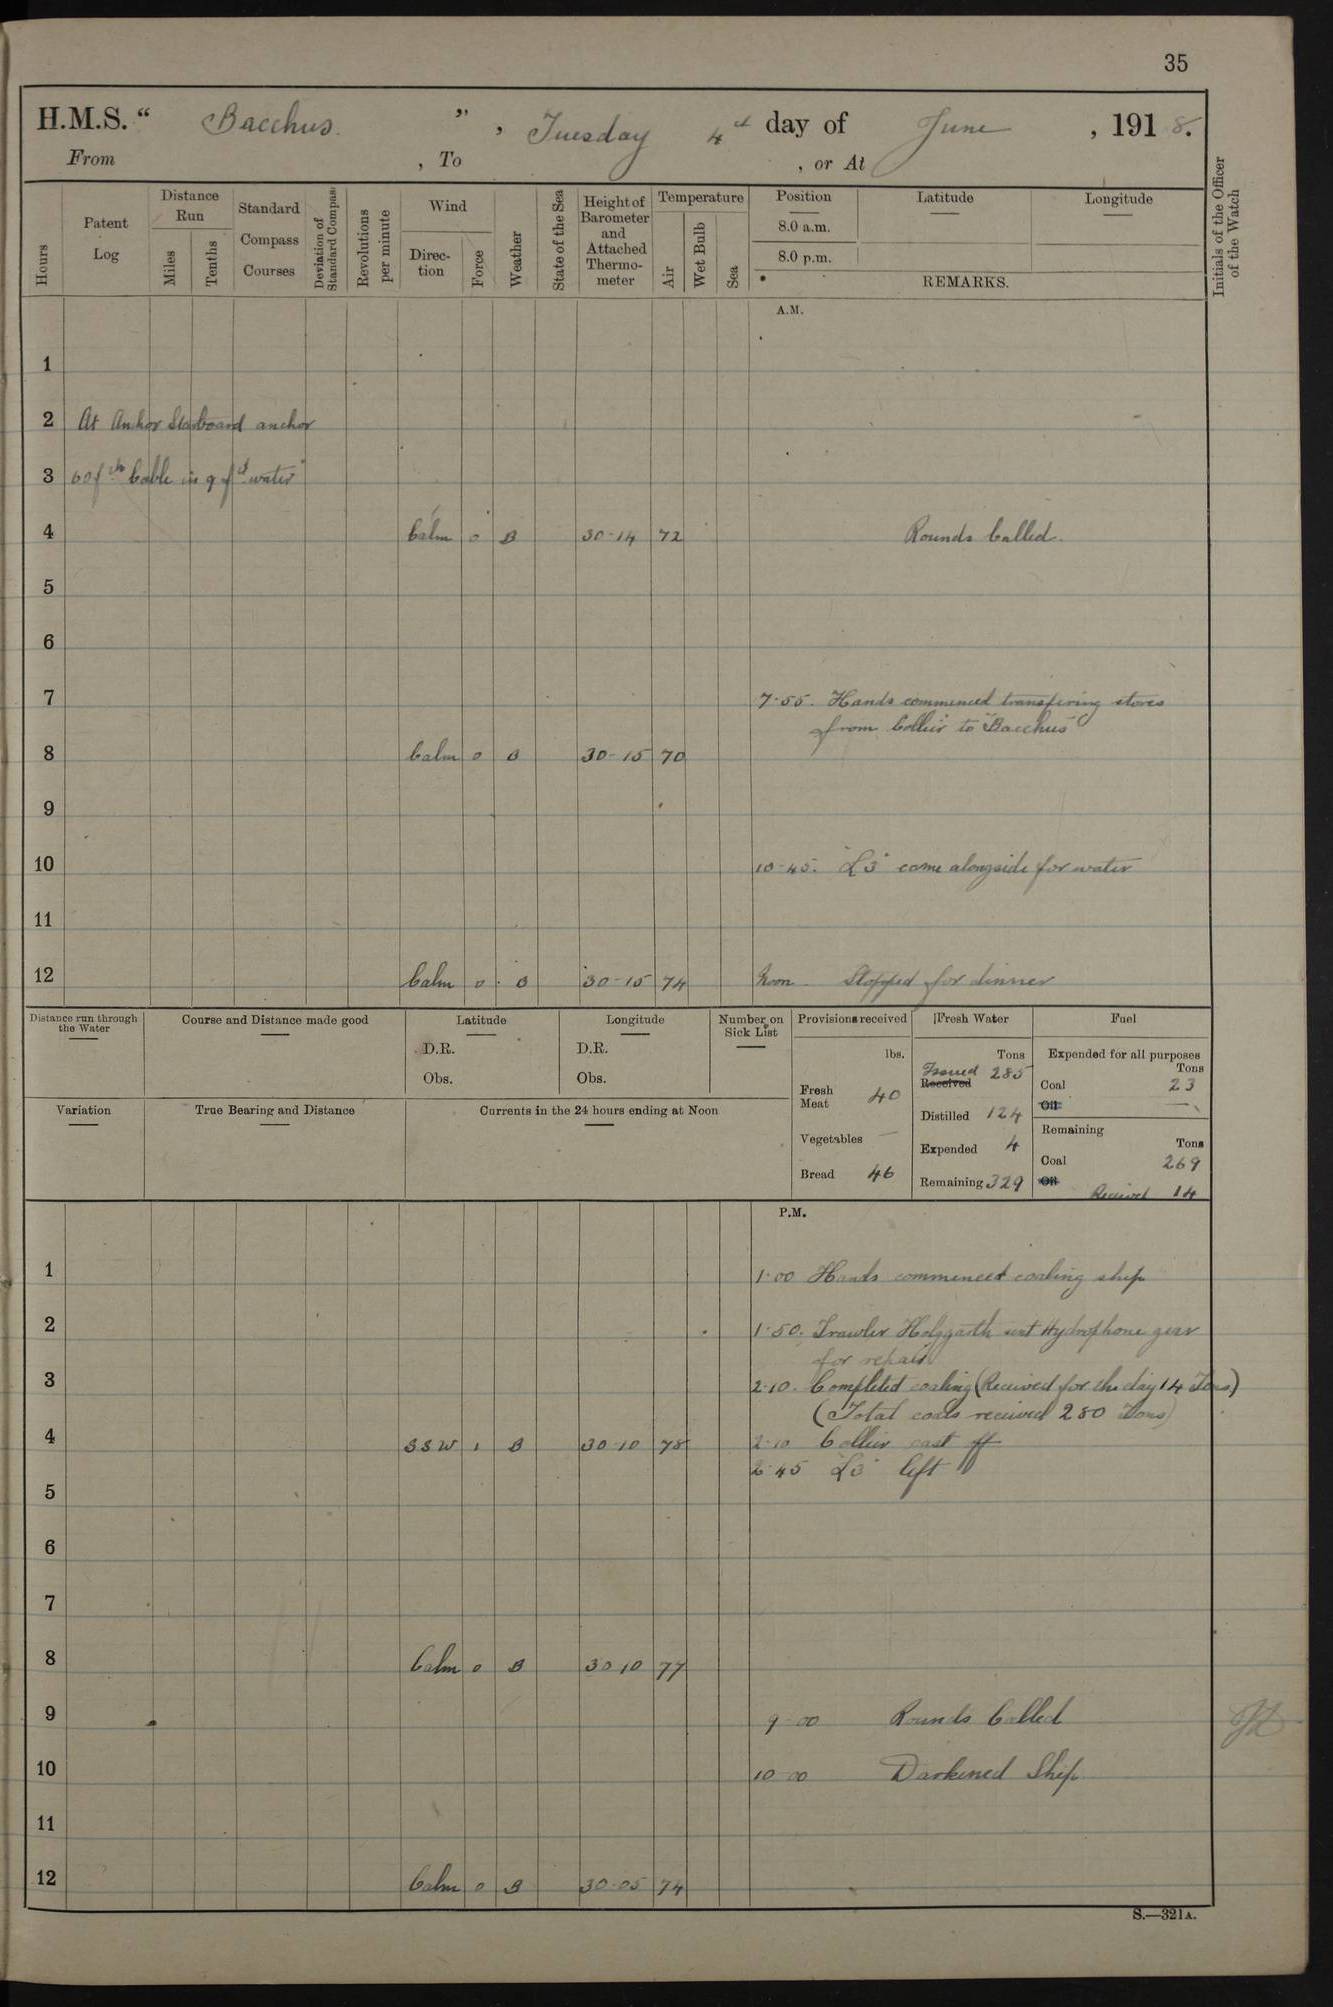 35
H.M.S. “ Bacchus. ” , Tuesday 4th day of June , 1918.
From , To , or At
Hours
Patent Log
Distance Run
Miles
Tenths
Standard Compass Courses
Deviation of Standard Compass
Revolutions per minute
Wind
Direction
Force
Weather
State of the Sea
Height of Barometer and Attached Thermometer
Temperature
Air
Wet Bulb
Sea
Position Latitude Longitude
8.0 a.m.
8.0 p.m.
REMARKS.
Initials of the Officer of the Watch
A.M.
1
2 At Anchor Starboard anchor
3 60 fths Cable in 9 fths water
4 Calm 0 B 30-14 72 Rounds Called.
5
6
7 7-55. Hands commenced transfering stores
from Collier to "Bacchus"
8 Calm 0 B 30-15 70
9
10 10-45. "L3" came alongside for water
11
12 Calm 0 B 30-15 74 Noon Stopped for dinner
Distance run through the Water
Course and Distance made good
Latitude
D.R.
Obs.
Longitude
D.R.
Obs.
Number on Sick List
Provisions received
lbs.
Fresh Meat 40
Vegetables —
Bread 46
Fresh Water
Tons
Issued 285
Received
Distilled 124
Expended 4
Remaining 329
Fuel
Expended for all purposes
Tons
Coal 23
Oil —
Remaining
Tons
Coal 269
Oil
Received 14
Variation
True Bearing and Distance
Currents in the 24 hours ending at Noon
P.M.
1 1-00 Hands commenced coaling ship
2 1-50. Trawler sent Hydrophone gear
for repair
3 2-10. Completed coaling (Received for the day 14 Tons)
(Total coals received 280 Tons)
4 SSW 1 B 30-10 78 2-10 Collier cast off
2-45 "L3" left
5
6
7
8 Calm 0 B 30 10 77
9 9-00 Rounds Called
10 10-00 Darkened Ship
11
12 Calm 0 B 30-05 74
S.—321A.